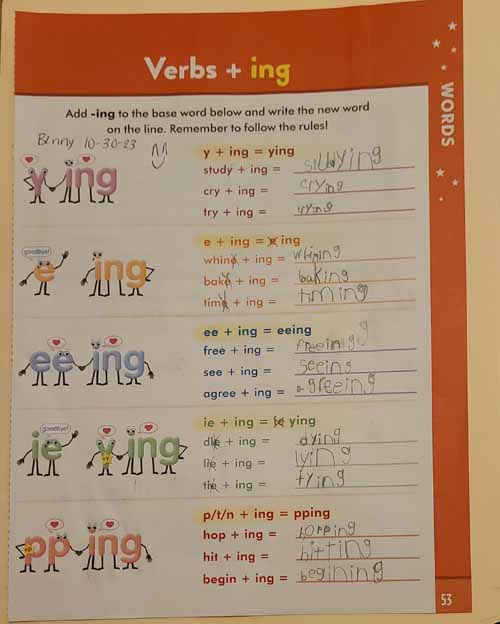 Verbs + ing
WORDS
Add -ing to the base word below and write the new word
on the line. Remember to follow the rules!
Benny 10-30-23
y ing
y + ing = ying
study + ing = studying
cry + ing = crying
try + ing = trying
goodbye!
e ing
e + ing = e ing
whine + ing = whining
bake + ing = baking
time + ing = timing
ee ing
ee + ing = eeing
free + ing = freeing
see + ing = seeing
agree + ing = agreeing
goodbye!
ie y ing
ie + ing = ie ying
die + ing = dying
lie + ing = lying
tie + ing = tying
pp ing
p/t/n + ing = pping
hop + ing = hopping
hit + ing = hitting
begin + ing = begining
53